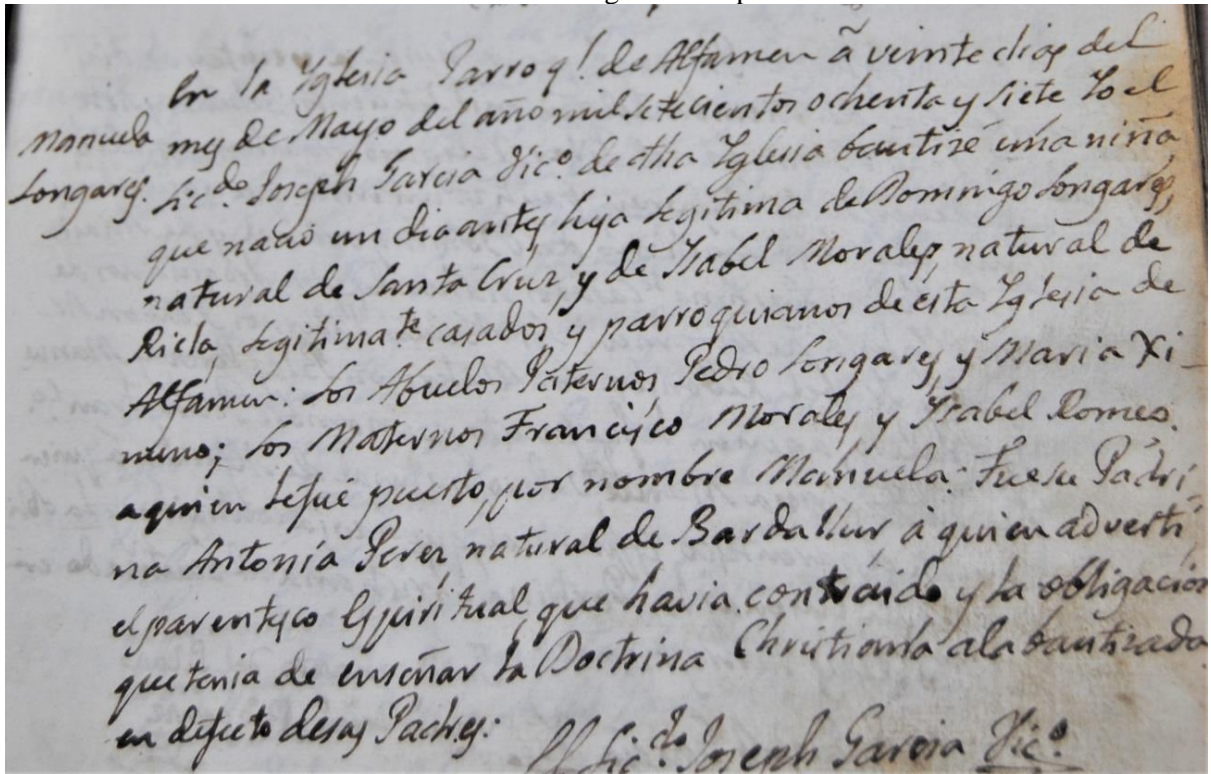 Manuela
Longares.
En la Yglesia Parroql. de Alfamen â veinte dias del
mes de Mayo del año mil setecientos ochenta y siete Yo el
Licdo. Joseph Garcia Vico. de dha Yglesia bautizé una niña,
que nació un dia antes, hija legitima de Domingo Longares,
natural de Santa Cruz, y de Ysabel Morales, natural de
Ricla, legitimate. casados, y parroquianos de esta Yglesia de
Alfamen: Los Abuelos Paternos, Pedro Longares, y Maria Xi-
meno; los Maternos Francisco Morales, y Ysabel Romeo.
a quien le fué puesto, por nombre Manuela: Fue su Padri-
na Antonia Perez, natural de Bardallur, á quien advertí
el parentesco Espiritual, que havia contraido y la obligación
que tenia de enseñar la Doctrina Christiana ala bautizada
en defecto desus Padres:
El Licdo. Joseph Garcia Vico.